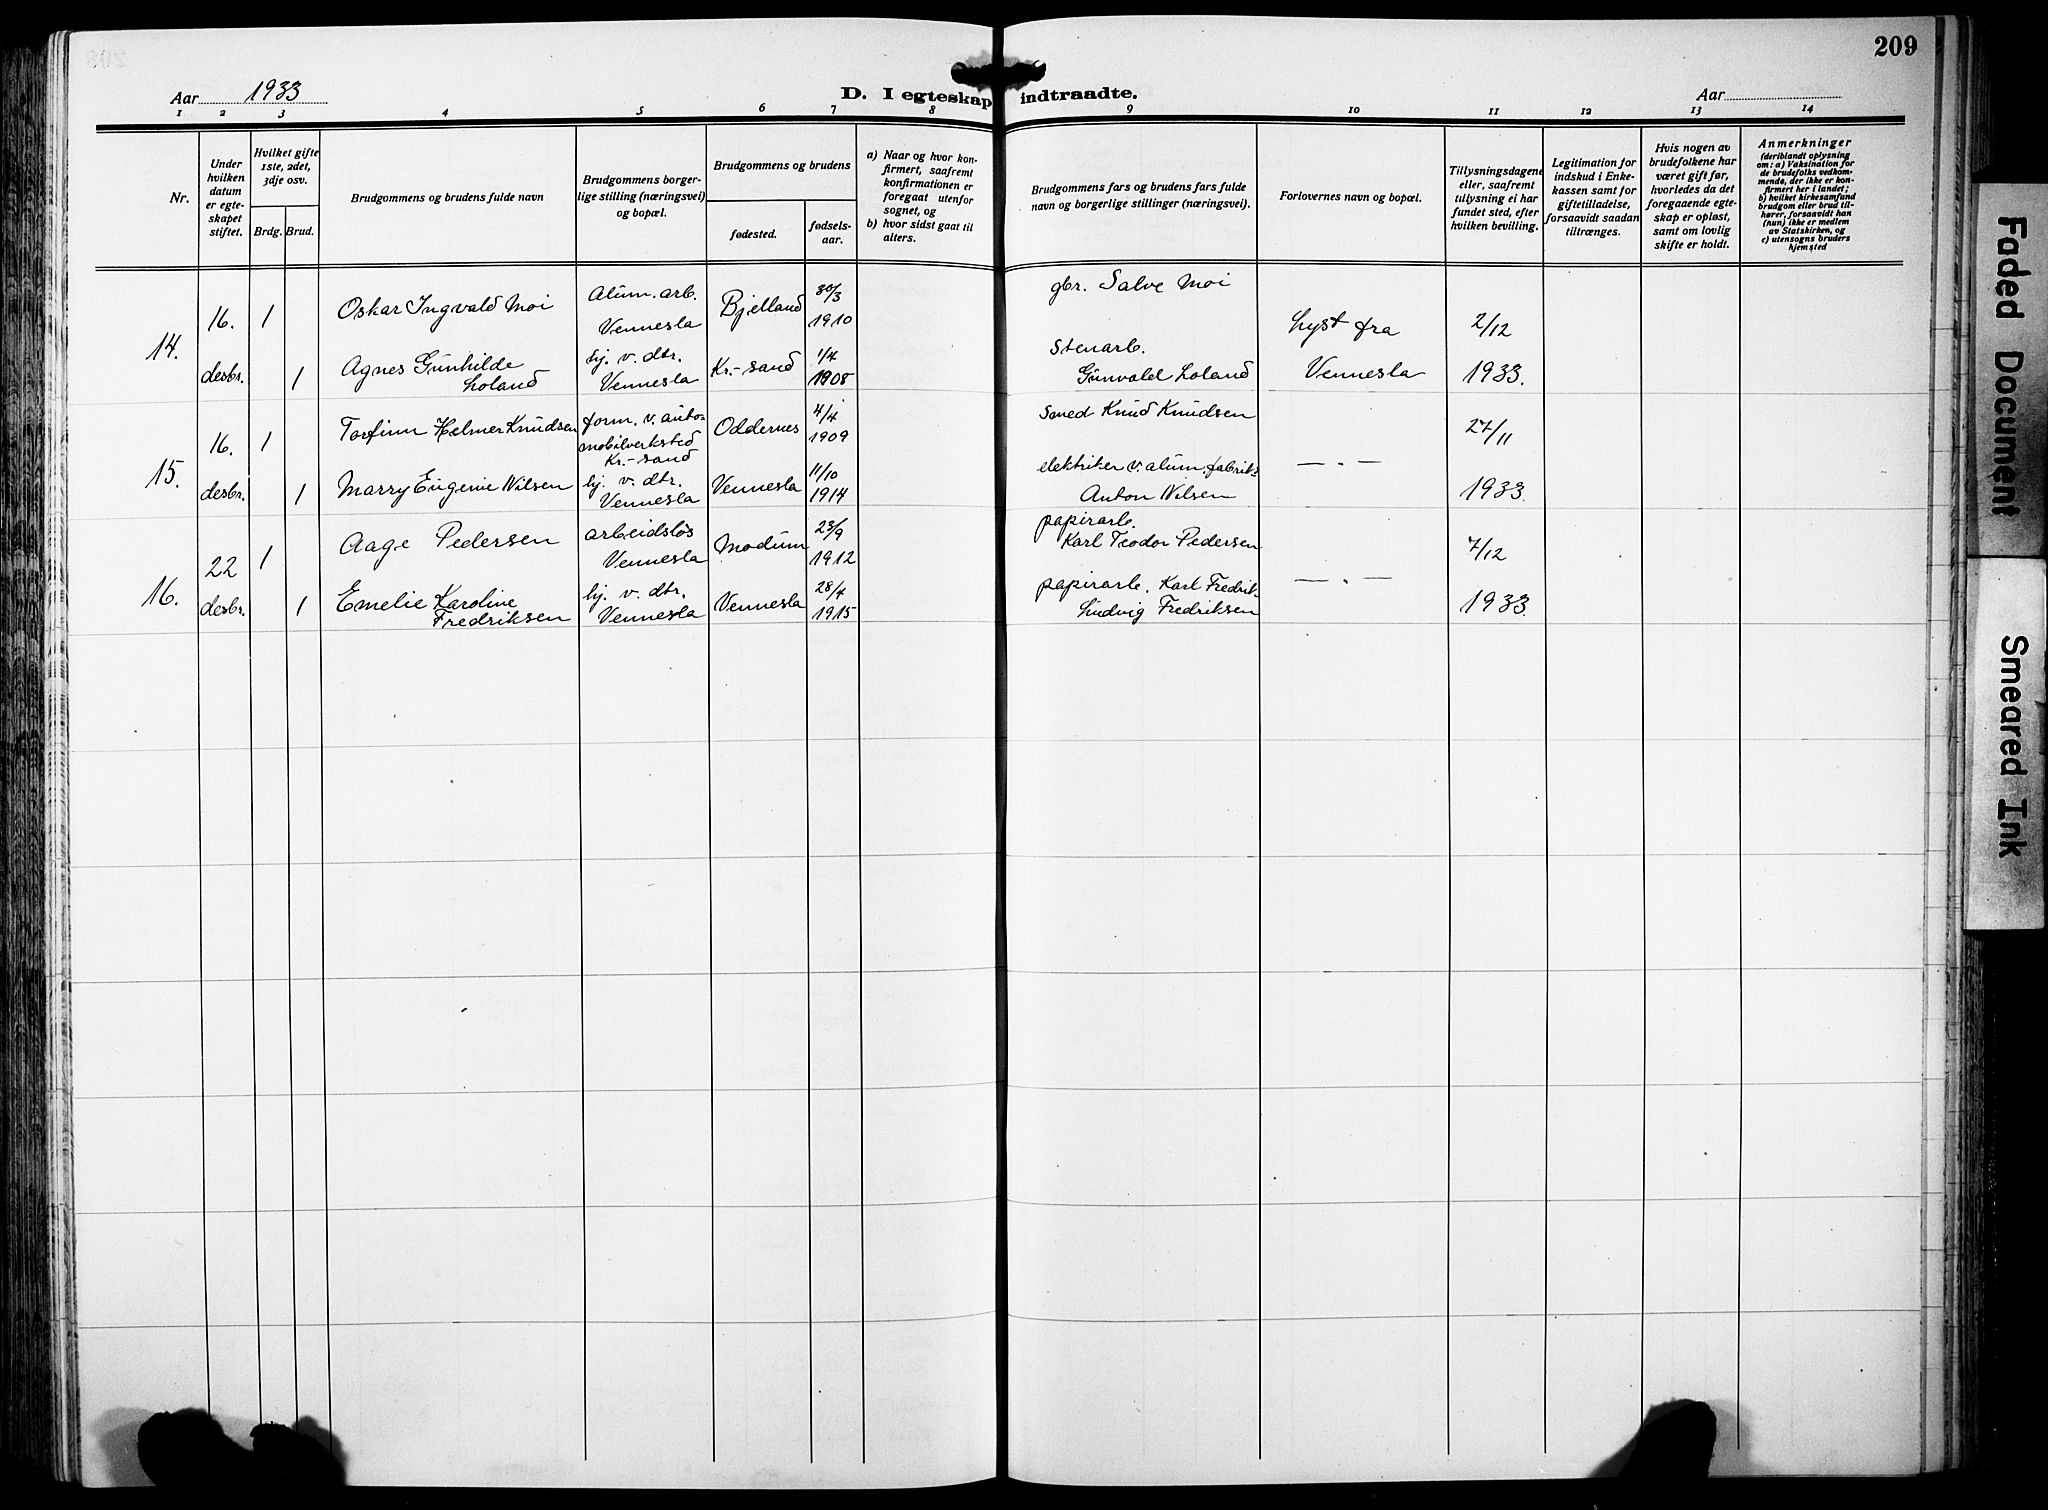 209
Aar 1933
D. I egteskap indtraadte.
Aar
1 2 3 4 5 6 7 8 9 10 11 12 13 14
Nr.
Under
hvilken
datum
er egte-
skapet
stiftet.
Hvilket gifte
1ste, 2det,
3dje osv.
Brdg. Brud.
Brudgommens og brudens fulde navn
Brudgommens borger-
lige stilling (næringsvei)
og bopæl.
Brudgommens og brudens
fødested.
fødsels-
aar.
a) Naar og hvor kon-
firmert, saafremt
konfirmationen er
foregaat utenfor
sognet, og
b) hvor sidst gaat til
alters.
Brudgommens fars og brudens fars fulde
navn og borgerlige stillinger (næringsvei).
Forlovernes navn og bopæl.
Tillysningsdagene
eller, saafremt
tillysning ei har
fundet sted, efter
hvilken bevilling.
Legitimation for
indskud i Enke-
kassen samt for
giftetilladelse,
forsaavidt saadan
tiltrænges.
Hvis nogen av
brudefolkene har
været gift før,
hvorledes da det
foregaaende egte-
skap er opløst,
samt om lovlig
skifte er holdt.
Anmerkninger
(deriblandt oplysning
om: a) Vaksination for
de brudefolks vedkom-
mende, der ikke er kon-
firmert her i landet;
b) hvilket kirkesamfund
brudgom eller brud til-
hører, forsaavidt han
(hun) ikke er medlem
av Statskirken, og
c) utensogns bruders
hjemsted
14.
16.
desbr.
1
Oskar Ingvald Moi
Alum. arb.
Vennesla
Bjelland
30/3
1910
gbr. Salve Moi
Lyst fra
Vennesla
2/12
1933.
1
Agnes Gunhilde
Loland
hj. v. dtr.
Vennesla
Kr.-sand
1/4
1908
Stenarb.
Gunvald Loland
15.
16.
desbr.
1
Torfinn Helmer Knudsen
form. v. auto-
mobilverksted
Kr.-sand
Oddernes
4/4
1909
Smed Knud Knudsen
— „ —
27/11
1933.
1
Marry Eugenie Nilsen
hj. v. dtr.
Vennesla
Vennesla
11/10
1914
elektriker v. alum. fabrik.
Anton Nilsen
16.
22
desbr.
1
Aage Pedersen
arbeidsløs
Vennesla
Modum
23/9
1912
papirarb.
Karl Teodor Pedersen
— „ —
7/12
1933.
1
Emelie Karoline
Fredriksen
hj. v. dtr.
Vennesla
Vennesla
28/4
1915
papirarb. Karl Fredrik
Ludvig Fredriksen
Faded Document
Smeared Ink